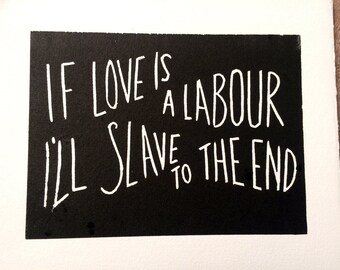 IF LOVE IS A LABOUR
I'LL SLAVE TO THE END